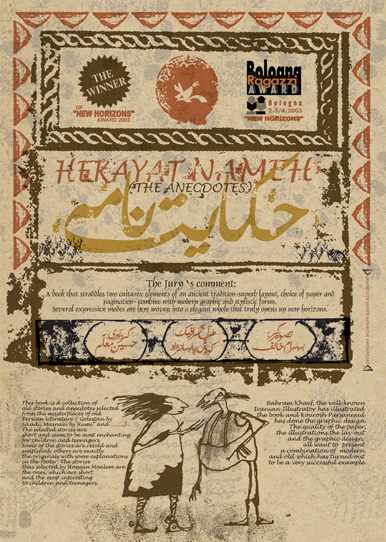 THE
WINNER
OF
"NEW HORIZONS"
AWARD 2003
Bologna
Ragazzi
AWARD
Bologna
2-5/4/2003
"NEW HORIZONS"
HEKAYAT NAMEH
(THE ANECDOTES)
حکایت نامه
The Jury`s comment:
A book that straddles two cultures: elements of an ancient tradition-superb layout, choice of paper and
pagination- combine with modern graphic and stylistic forms.
Several expressive modes are here woven into a elegant whole that truly opens up new horizons.
حسین معلم
تصویرگر
بهرام خائف
This book is a collection of
old stories and anecdotes selected
from the masterpieces of old
Persian literature ( Golestan by
Saadi, Masnavi by Rumi and
The selected stories are
short and seem to be most enchanting
for children and teenagers.
Some of the stories are retold and
simplified; others are exactly
the originals with some explanations
in the footer. The stories
thus selected by Hossein Moalem are
the ones, which are short
and the most interesting
to children and teenagers.
Bahram Khaef, the well-known
Iranian Illustrator has illustrated
the book and Kourosh Parsanejad
has done the graphic design.
The quality of the paper,
the illustrations, the lay-out
and the graphic design,
all want to present
a combination of modern
and old which has turned out
to be a very successful example.